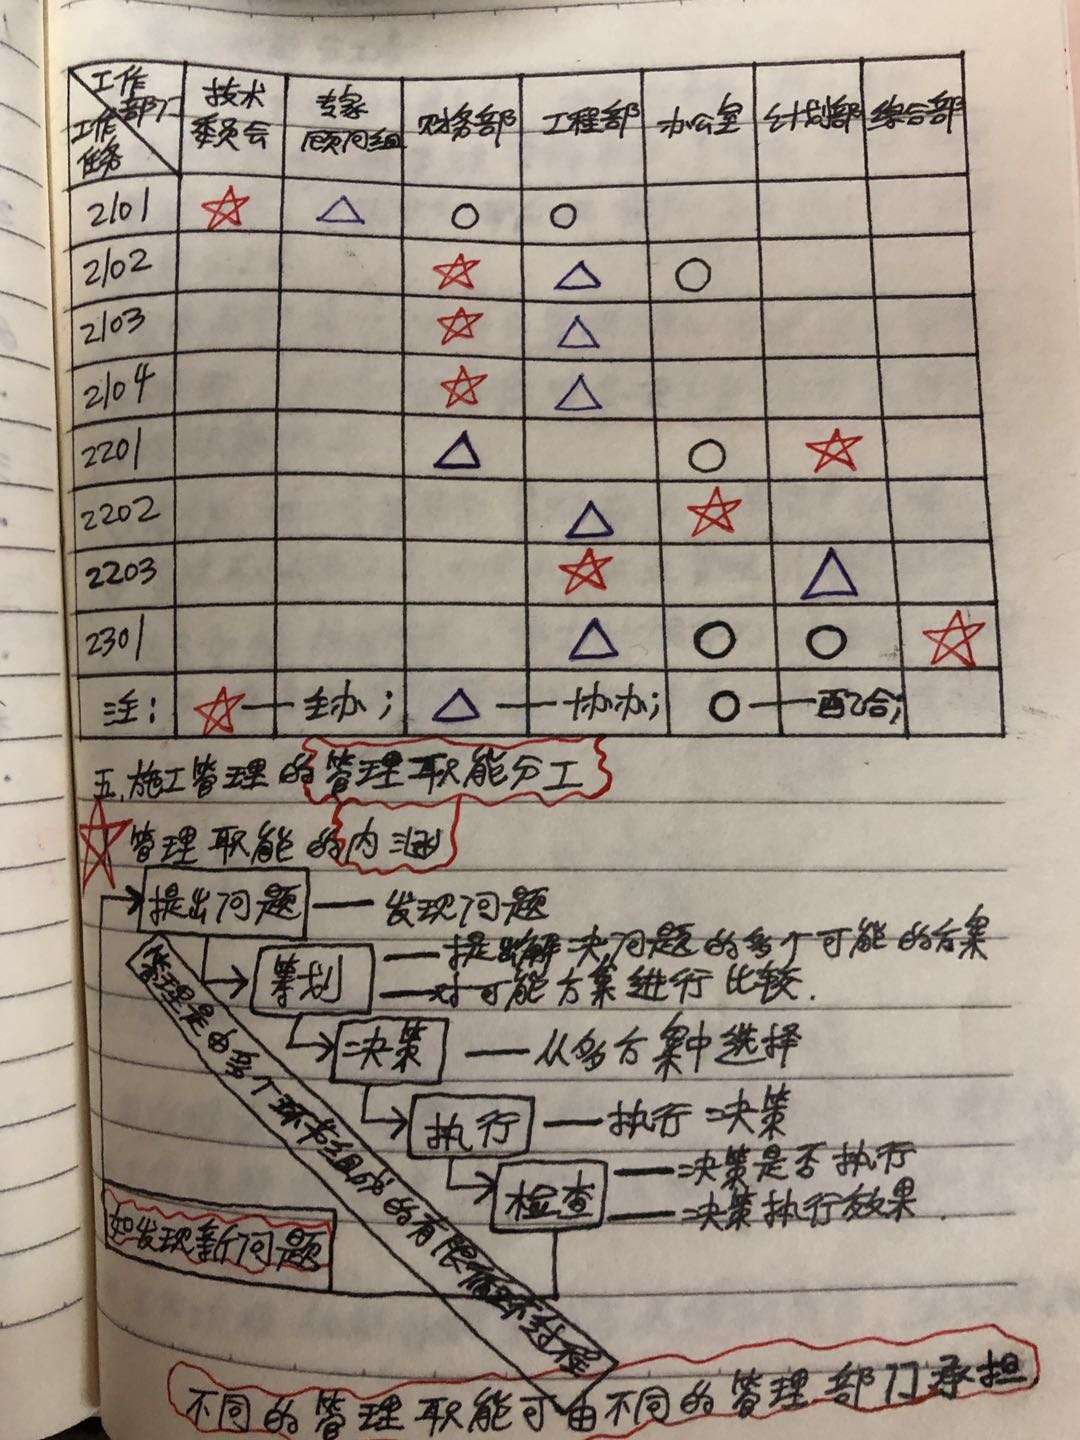 工作部门 工作任务 技术委员会 专家顾问组 财务部 工程部 办公室 计划部 综合部
2101 ☆ △ ○ ○
2102 ☆ △ ○
2103 ☆ △
2104 ☆ △
2201 △ ○ ☆
2202 △ ☆
2203 ☆ △
2301 △ ○ ○ ☆
注: ☆—主办; △—协办; ○—配合;
五.施工管理的管理职能分工
☆管理职能的内涵
提出问题 — 发现问题
筹划 —提出解决问题的多个可能的方案
—对可能方案进行比较.
决策 — 从多方案中选择
执行 — 执行决策
检查 —决策是否执行
—决策执行效果.
如发现新问题
管理是由多个环节组成的有限循环过程
不同的管理职能可由不同的管理部门承担